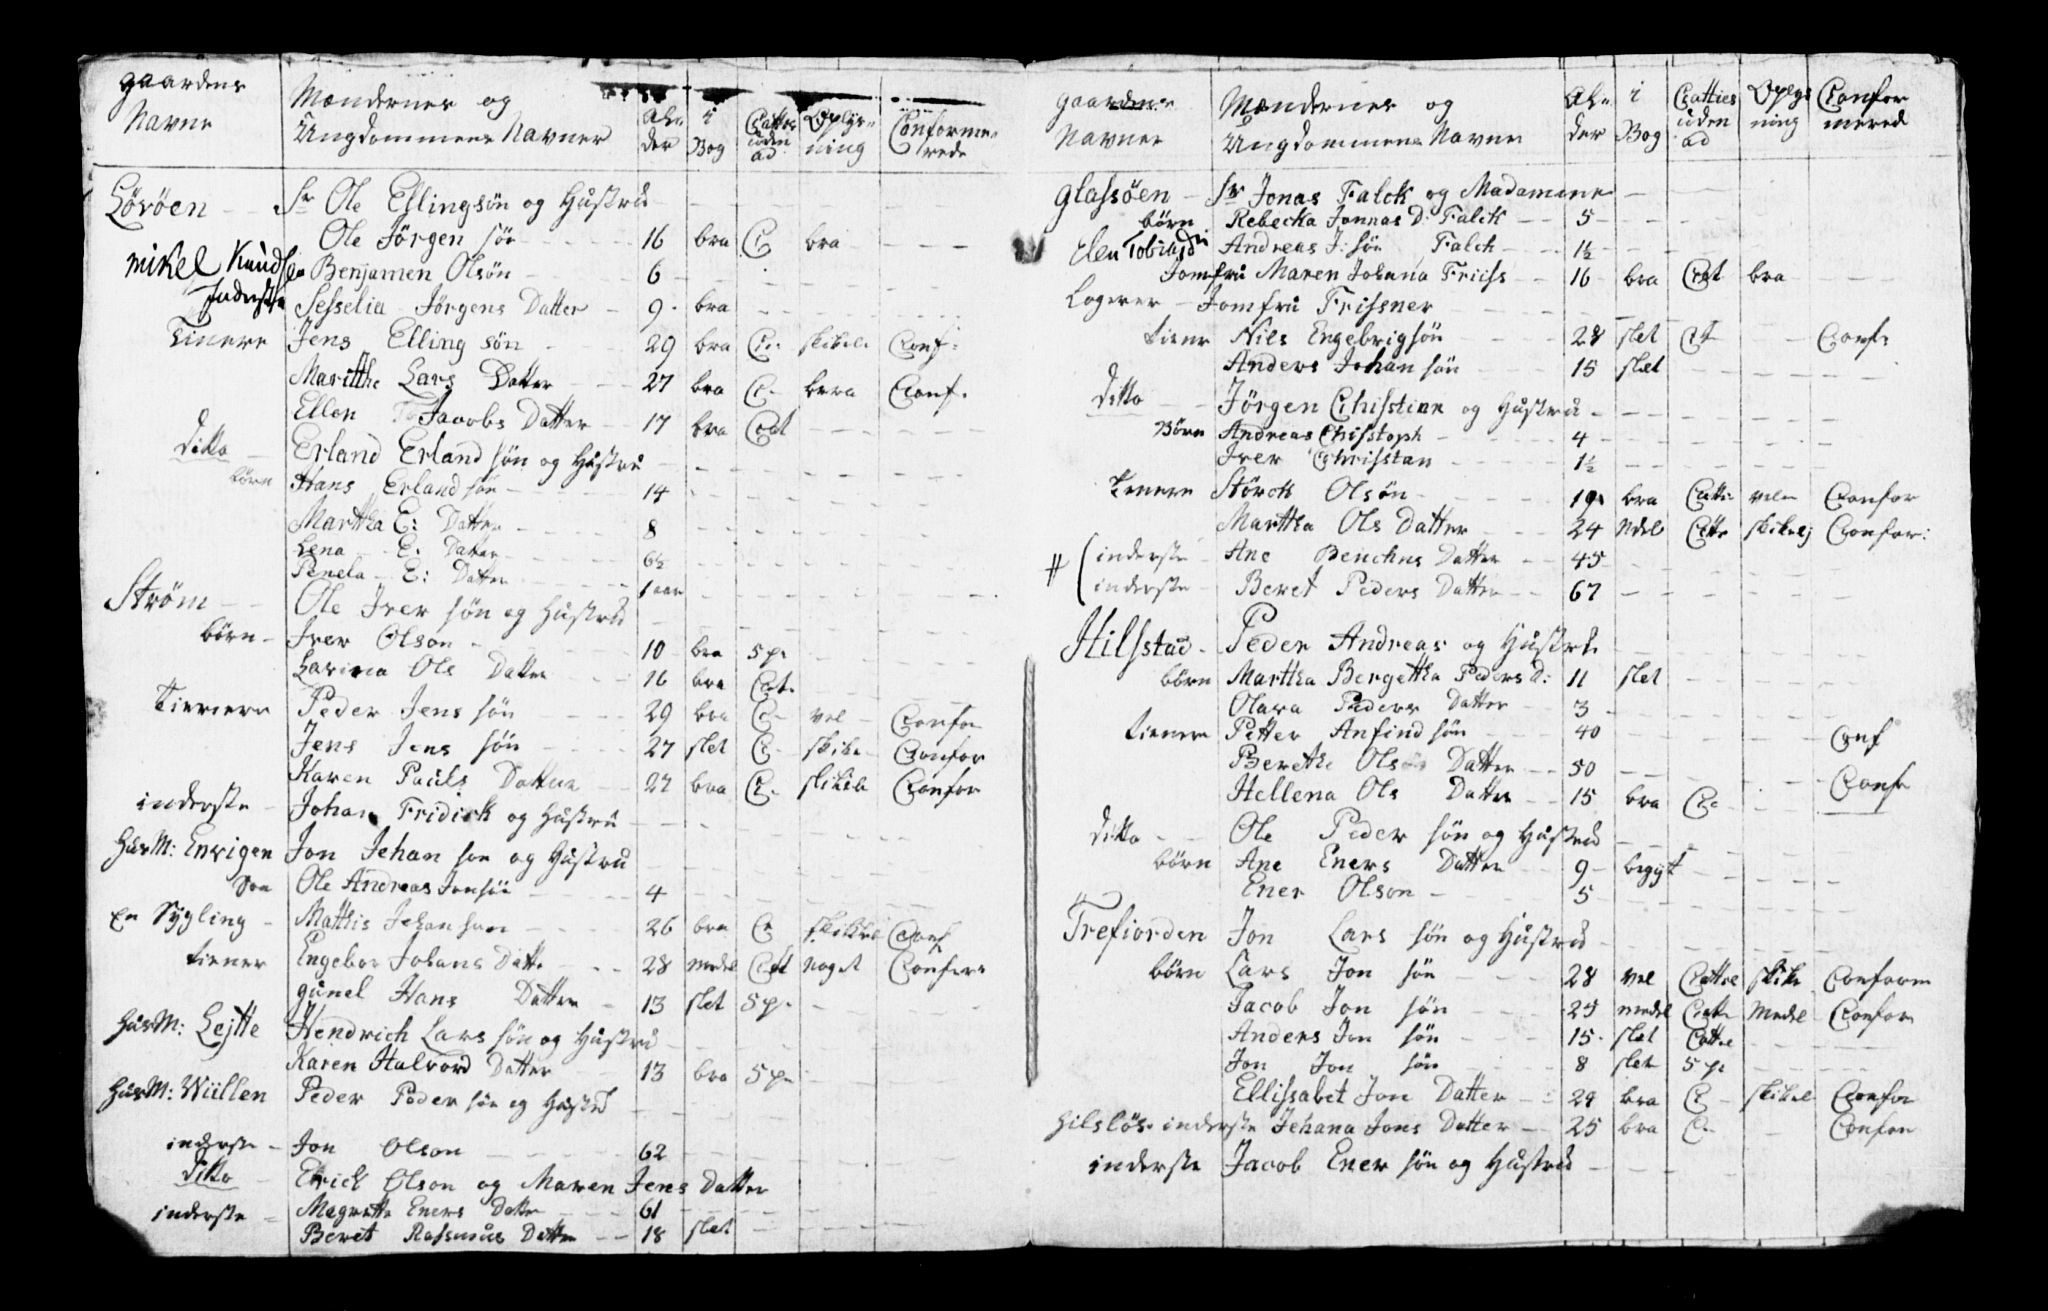 gaardens Navne | Mændernes og Ungdommens Navner | Al= der | i Bog | Catties uden ad | Oplys= ning | Conforme= rede
Lørøen — Sr Ole Ellingsøn og Hustrú
Ole Jørgen søn 16 bra C bra
Mikel Knúdsen Benjamen Olsøn 6
Inderste Sesselia Jørgens Datter 9 bra
Tinere Jens Elling søn 29 bra C: skikel: Conf:
Maritthe Lars Datter 27 bra C- Conf.
Ellen Jacobs Datter 17 bra Cat
Ditto Erland Erland søn og Hústrú
børn Hans Erland søn 14
Marttha E: Datter 8
Lena E. Datter 6½
Penela E: Datter 1 aar
Strøm Ole Iver søn og Hústrú
børn Iver Olson 10 bra 5 p.
Larina Ols Datter 16 bra Cat.
Tienere Peder Jens søn 29 bra C- vel Confor
Jens Jens søn 27 slet C- skike- Confor
Karen Paúls Datter 27 bra C- skikele Confor
inderste Johan Fridick og Hústrú
HúsM: Envigen Jon Johan søn og Hústrú
Søn Ole Andreas Jonsøn 4
en Sygling Matthis Johan søn 26 bra C skikkel Conf
tiener Engebor Johans Datter 28 medel Cat noget Confere
gúnel Hans Datter 13 slet 5 p.
HúsM: Lejtte Hendrich Lars søn og Hústrú
Karen Halvord Datter 13 bra 5 p.
HúsM: Wúllen Peder Peder søn og Hústrú
inderste Jon Olson 62
Ditto Erick Olson og Maren Jens Datter
inderste Magrette Eners Datter 61
Beret Rassmús Datter 18 slet
gaardenes Navner | Mændernes og Ungdommens Navne | Al= der | i Bog | Catties uden ad | Oplys ning | Confor mered
glassøen — Sr Jonas Falck og Madamme
børn Rebecka Jonnas D: Falck 5
Andreas J: søn Falch 1½
Jomfrú Maren Johana Friiss 16 bra Cat bra
Logerer — Jomfrú Frissner
tiener Nils Engebrigsøn 28 slet Ct Conf:
Anders Johan søn 15 slet
Ditto Jørgen Chisstian og Hústrú
Børn Andreas Chisstoph 4
Iver Chrisstan 1½
Tienere Størck Olsøn 19 bra Catte vel Confor
Marttha Ols Datter 24 Mdel Catte skikelj Confor:
# ( inderste Ane Benchus Datter 45
( inderste Beret Peders Datter 67
Hilsstad Peder Andreas og Hústrú
børn Marttha Bergettha Peders D: 11 slet
Olava Peders Datter 3
tienere Petter Anfind søn 40 Conf
Berethe Ols Datter 50 Conf
Hellena Ols Datter 15 bra C-
Ditto Ole Peder søn og Hústrú
børn Ane Eners Datter 9 begyt
Ener Olson 5
Trefiorden Jon Lars søn og Hústrú
børn Lars Jon søn 28 vel Cattel skike Conform
Jacob Jon søn 25 medel Cate Medel Confor
Anders Jon søn 15 slet Catte
Jon Jon søn 8 slet 5 p.
Ellissabet Jon Datter 29 bra C- skikel Confor
Hilsløs inderste Johana Jons Datter 25 bra C- Confor
inderste Jacob Ener søn og Hústrú